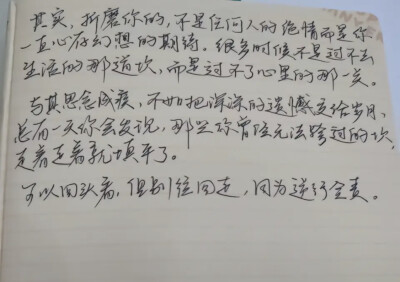 其实，折磨你的，不是任何人的绝情而是你
一直心存幻想的期待。很多时候不是过不去
生活的那道坎，而是过不了心里的那一关。
与其思念成疾，不如把深深的遗憾交给岁月，
总有一天你会发现，那些你曾经无法跨过的坎，
走着走着就填平了。
可以回头看，但别往回走，因为逆行全责。